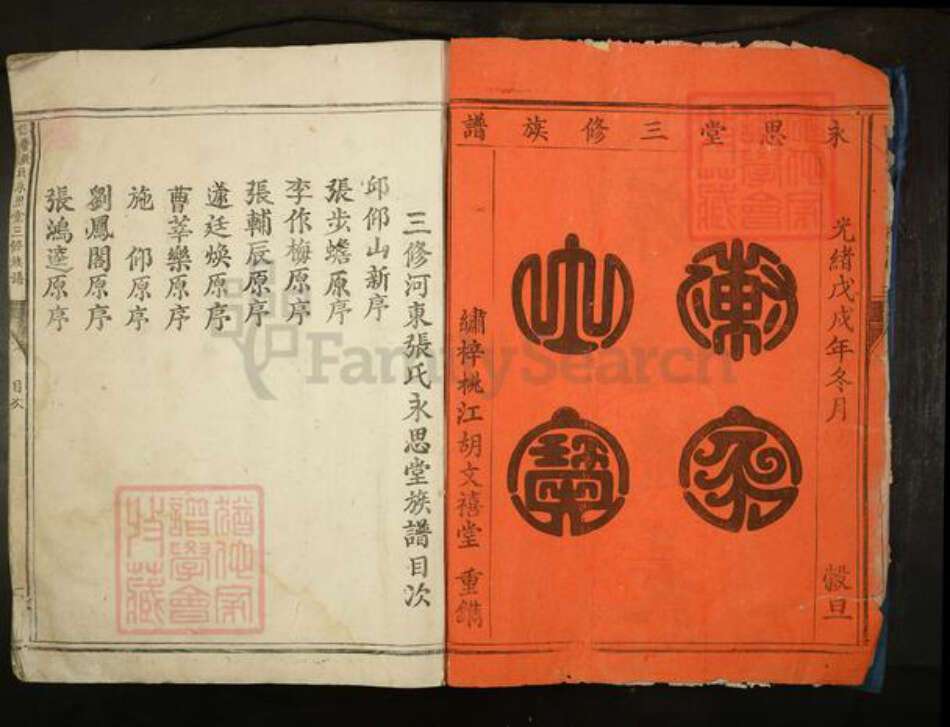 永思堂三修族譜
光緒戊戌年冬月
穀旦
繡梓桃江胡文禧堂 重鐫
三修河東張氏永思堂族譜目次
邱仰山新序
張步蟾原序
李作梅原序
張輔辰原序
蘧廷煥原序
曹莘樂原序
施 仰原序
劉鳳閣原序
張鴻逵原序
目次
一
FamilySearch